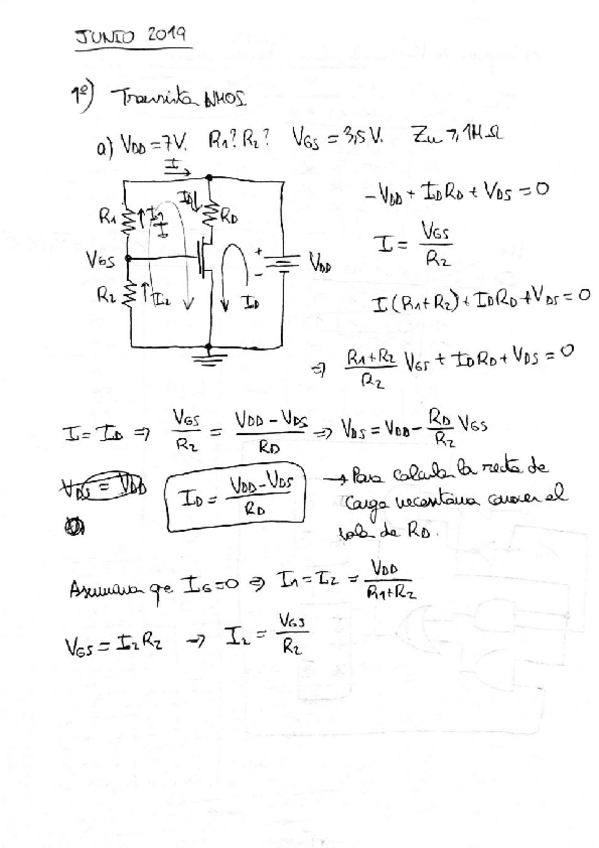 JUNIO 2019
1º) Transistor NMOS
a) VDD = 7V. R1? R2? VGS = 3,5V. Zin ≥ 1MΩ
I
ID
R1 I1 I RD
VGS
R2 I2 ID + - VDD
-VDD + IDRD + VDS = 0
I = VGS / R2
I(R1+R2) + IDRD + VDS = 0
⇒ (R1+R2)/R2 VGS + IDRD + VDS = 0
I = ID ⇒ VGS/R2 = (VDD - VDS)/RD ⇒ VDS = VDD - RD/R2 VGS
VDS = VDD
ID = (VDD - VDS)/RD
→ Para calcular la recta de
carga necesitamos conocer el
valor de RD.
Asumimos que IG=0 ⇒ I1 = I2 = VDD/(R1+R2)
VGS = I2R2 → I2 = VGS/R2